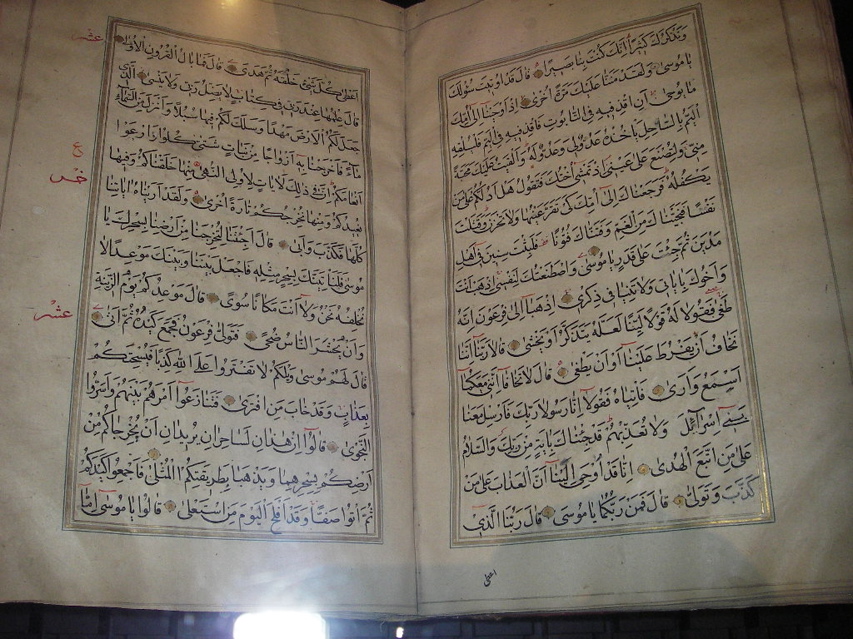 وَنَذْكُرَكَ كَثِيرًا اِنَّكَ كُنْتَ بِنَا بَصِيرًا قَالَ قَدْ اُوتِيتَ سُؤْلَكَ
يَا مُوسٰى وَلَقَدْ مَنَنَّا عَلَيْكَ مَرَّةً اُخْرٰى اِذْ اَوْحَيْنَا اِلٰى اُمِّكَ
مَا يُوحٰى اَنِ اقْذِفِيهِ فِى التَّابُوتِ فَاقْذِفِيهِ فِى الْيَمِّ فَلْيُلْقِهِ
الْيَمُّ بِالسَّاحِلِ يَاْخُذْهُ عَدُوٌّ لِى وَعَدُوٌّ لَهُ وَاَلْقَيْتُ عَلَيْكَ مَحَبَّةً
مِنِّى وَلِتُصْنَعَ عَلٰى عَيْنِى اِذْ تَمْشِى اُخْتُكَ فَتَقُولُ هَلْ اَدُلُّكُمْ عَلٰى مَنْ
يَكْفُلُهُ فَرَجَعْنَاكَ اِلٰى اُمِّكَ كَىْ تَقَرَّ عَيْنُهَا وَلَا تَحْزَنَ وَقَتَلْتَ
نَفْسًا فَنَجَّيْنَاكَ مِنَ الْغَمِّ وَفَتَنَّاكَ فُتُونًا فَلَبِثْتَ سِنِينَ فِى اَهْلِ
مَدْيَنَ ثُمَّ جِئْتَ عَلٰى قَدَرٍ يَا مُوسٰى وَاصْطَنَعْتُكَ لِنَفْسِى اِذْهَبْ اَنْتَ
وَاَخُوكَ بِاٰيَاتِى وَلَا تَنِيَا فِى ذِكْرِى اِذْهَبَا اِلٰى فِرْعَوْنَ اِنَّهُ
طَغٰى فَقُولَا لَهُ قَوْلًا لَيِّنًا لَعَلَّهُ يَتَذَكَّرُ اَوْ يَخْشٰى قَالَا رَبَّنَا اِنَّنَا
نَخَافُ اَنْ يَفْرُطَ عَلَيْنَا اَوْ اَنْ يَطْغٰى قَالَ لَا تَخَافَا اِنَّنِى مَعَكُمَا
اَسْمَعُ وَاَرٰى فَاْتِيَاهُ فَقُولَا اِنَّا رَسُولَا رَبِّكَ فَاَرْسِلْ مَعَنَا
بَنِى اِسْرَآئِلَ وَلَا تُعَذِّبْهُمْ قَدْ جِئْنَاكَ بِاٰيَةٍ مِنْ رَبِّكَ وَالسَّلَامُ
عَلٰى مَنِ اتَّبَعَ الْهُدٰى اِنَّا قَدْ اُوحِىَ اِلَيْنَا اَنَّ الْعَذَابَ عَلٰى مَنْ
كَذَّبَ وَتَوَلّٰى قَالَ فَمَنْ رَبُّكُمَا يَا مُوسٰى قَالَ رَبُّنَا الَّذِى
اعطى
اَعْطٰى كُلَّ شَىْءٍ خَلْقَهُ ثُمَّ هَدٰى قَالَ فَمَا بَالُ الْقُرُونِ الْاُولٰى
عشر
قَالَ عِلْمُهَا عِنْدَ رَبِّى فِى كِتَابٍ لَا يَضِلُّ رَبِّى وَلَا يَنْسٰى اَلَّذِى
جَعَلَ لَكُمُ الْاَرْضَ مَهْدًا وَسَلَكَ لَكُمْ فِيهَا سُبُلًا وَاَنْزَلَ مِنَ السَّمَآءِ
مَآءً فَاَخْرَجْنَا بِهِ اَزْوَاجًا مِنْ نَبَاتٍ شَتّٰى كُلُوا وَارْعَوْا
ع
اَنْعَامَكُمْ اِنَّ فِى ذٰلِكَ لَاٰيَاتٍ لِاُولِى النُّهٰى مِنْهَا خَلَقْنَاكُمْ وَفِيهَا
نُعِيدُكُمْ وَمِنْهَا نُخْرِجُكُمْ تَارَةً اُخْرٰى وَلَقَدْ اَرَيْنَاهُ اٰيَاتِنَا
كُلَّهَا فَكَذَّبَ وَاَبٰى قَالَ اَجِئْتَنَا لِتُخْرِجَنَا مِنْ اَرْضِنَا بِسِحْرِكَ يَا
مُوسٰى فَلَنَاْتِيَنَّكَ بِسِحْرٍ مِثْلِهِ فَاجْعَلْ بَيْنَنَا وَبَيْنَكَ مَوْعِدًا لَا
نُخْلِفُهُ نَحْنُ وَلَا اَنْتَ مَكَانًا سُوًى قَالَ مَوْعِدُكُمْ يَوْمُ الزِّينَةِ
وَاَنْ يُحْشَرَ النَّاسُ ضُحًى فَتَوَلّٰى فِرْعَوْنُ فَجَمَعَ كَيْدَهُ ثُمَّ اَتٰى
عشر
قَالَ لَهُمْ مُوسٰى وَيْلَكُمْ لَا تَفْتَرُوا عَلَى اللّٰهِ كَذِبًا فَيُسْحِتَكُمْ
بِعَذَابٍ وَقَدْ خَابَ مَنِ افْتَرٰى فَتَنَازَعُوا اَمْرَهُمْ بَيْنَهُمْ وَاَسَرُّوا
النَّجْوٰى قَالُوا اِنْ هٰذَانِ لَسَاحِرَانِ يُرِيدَانِ اَنْ يُخْرِجَاكُمْ مِنْ
اَرْضِكُمْ بِسِحْرِهِمَا وَيَذْهَبَا بِطَرِيقَتِكُمُ الْمُثْلٰى فَاَجْمِعُوا كَيْدَكُمْ
ثُمَّ ائْتُوا صَفًّا وَقَدْ اَفْلَحَ الْيَوْمَ مَنِ اسْتَعْلٰى قَالُوا يَا مُوسٰى اِمَّا